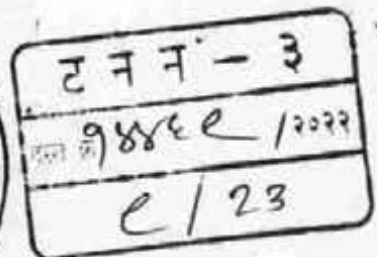 ट न नं - ३
दस्त क्र १४४६९ /२०२२
९ / 23